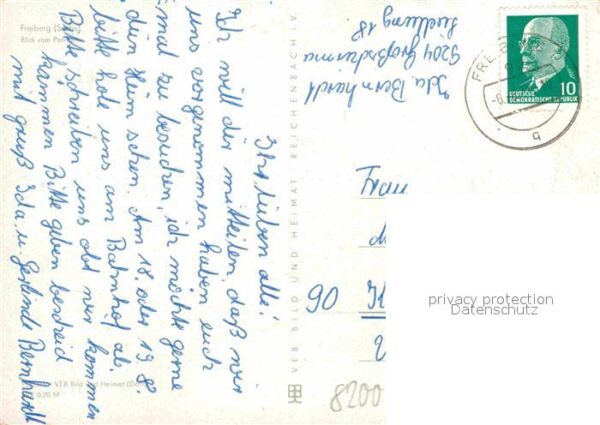 Freiberg (Sachs)
Blick vom Pet
Ihr lieben alle!
Ich will dir mitteilen, daß wir
uns vorgenommen haben euch
mal zu besuchen, ich möchte gerne
dein Heim sehen. Am 18. oder 19. 8.
bitte hole uns am Bahnhof ab.
Bitte schreiben uns obt wir kommen
kämmen Bitte geben bescheid
mit gruß Ida u. Gerlinde Bernhardt
VEB Bild und Heimat (D
0,20 M
VEB BILD UND HEIMAT · REICHENBACH I. V.
Ida. Bernhardt
9204 Großschirma
Siedlung 18
FREIB
10
DEUTSCHE
DEMOKRATISCHE REPUBLIK
q
Frau
90
8200
privacy protection
Datenschutz